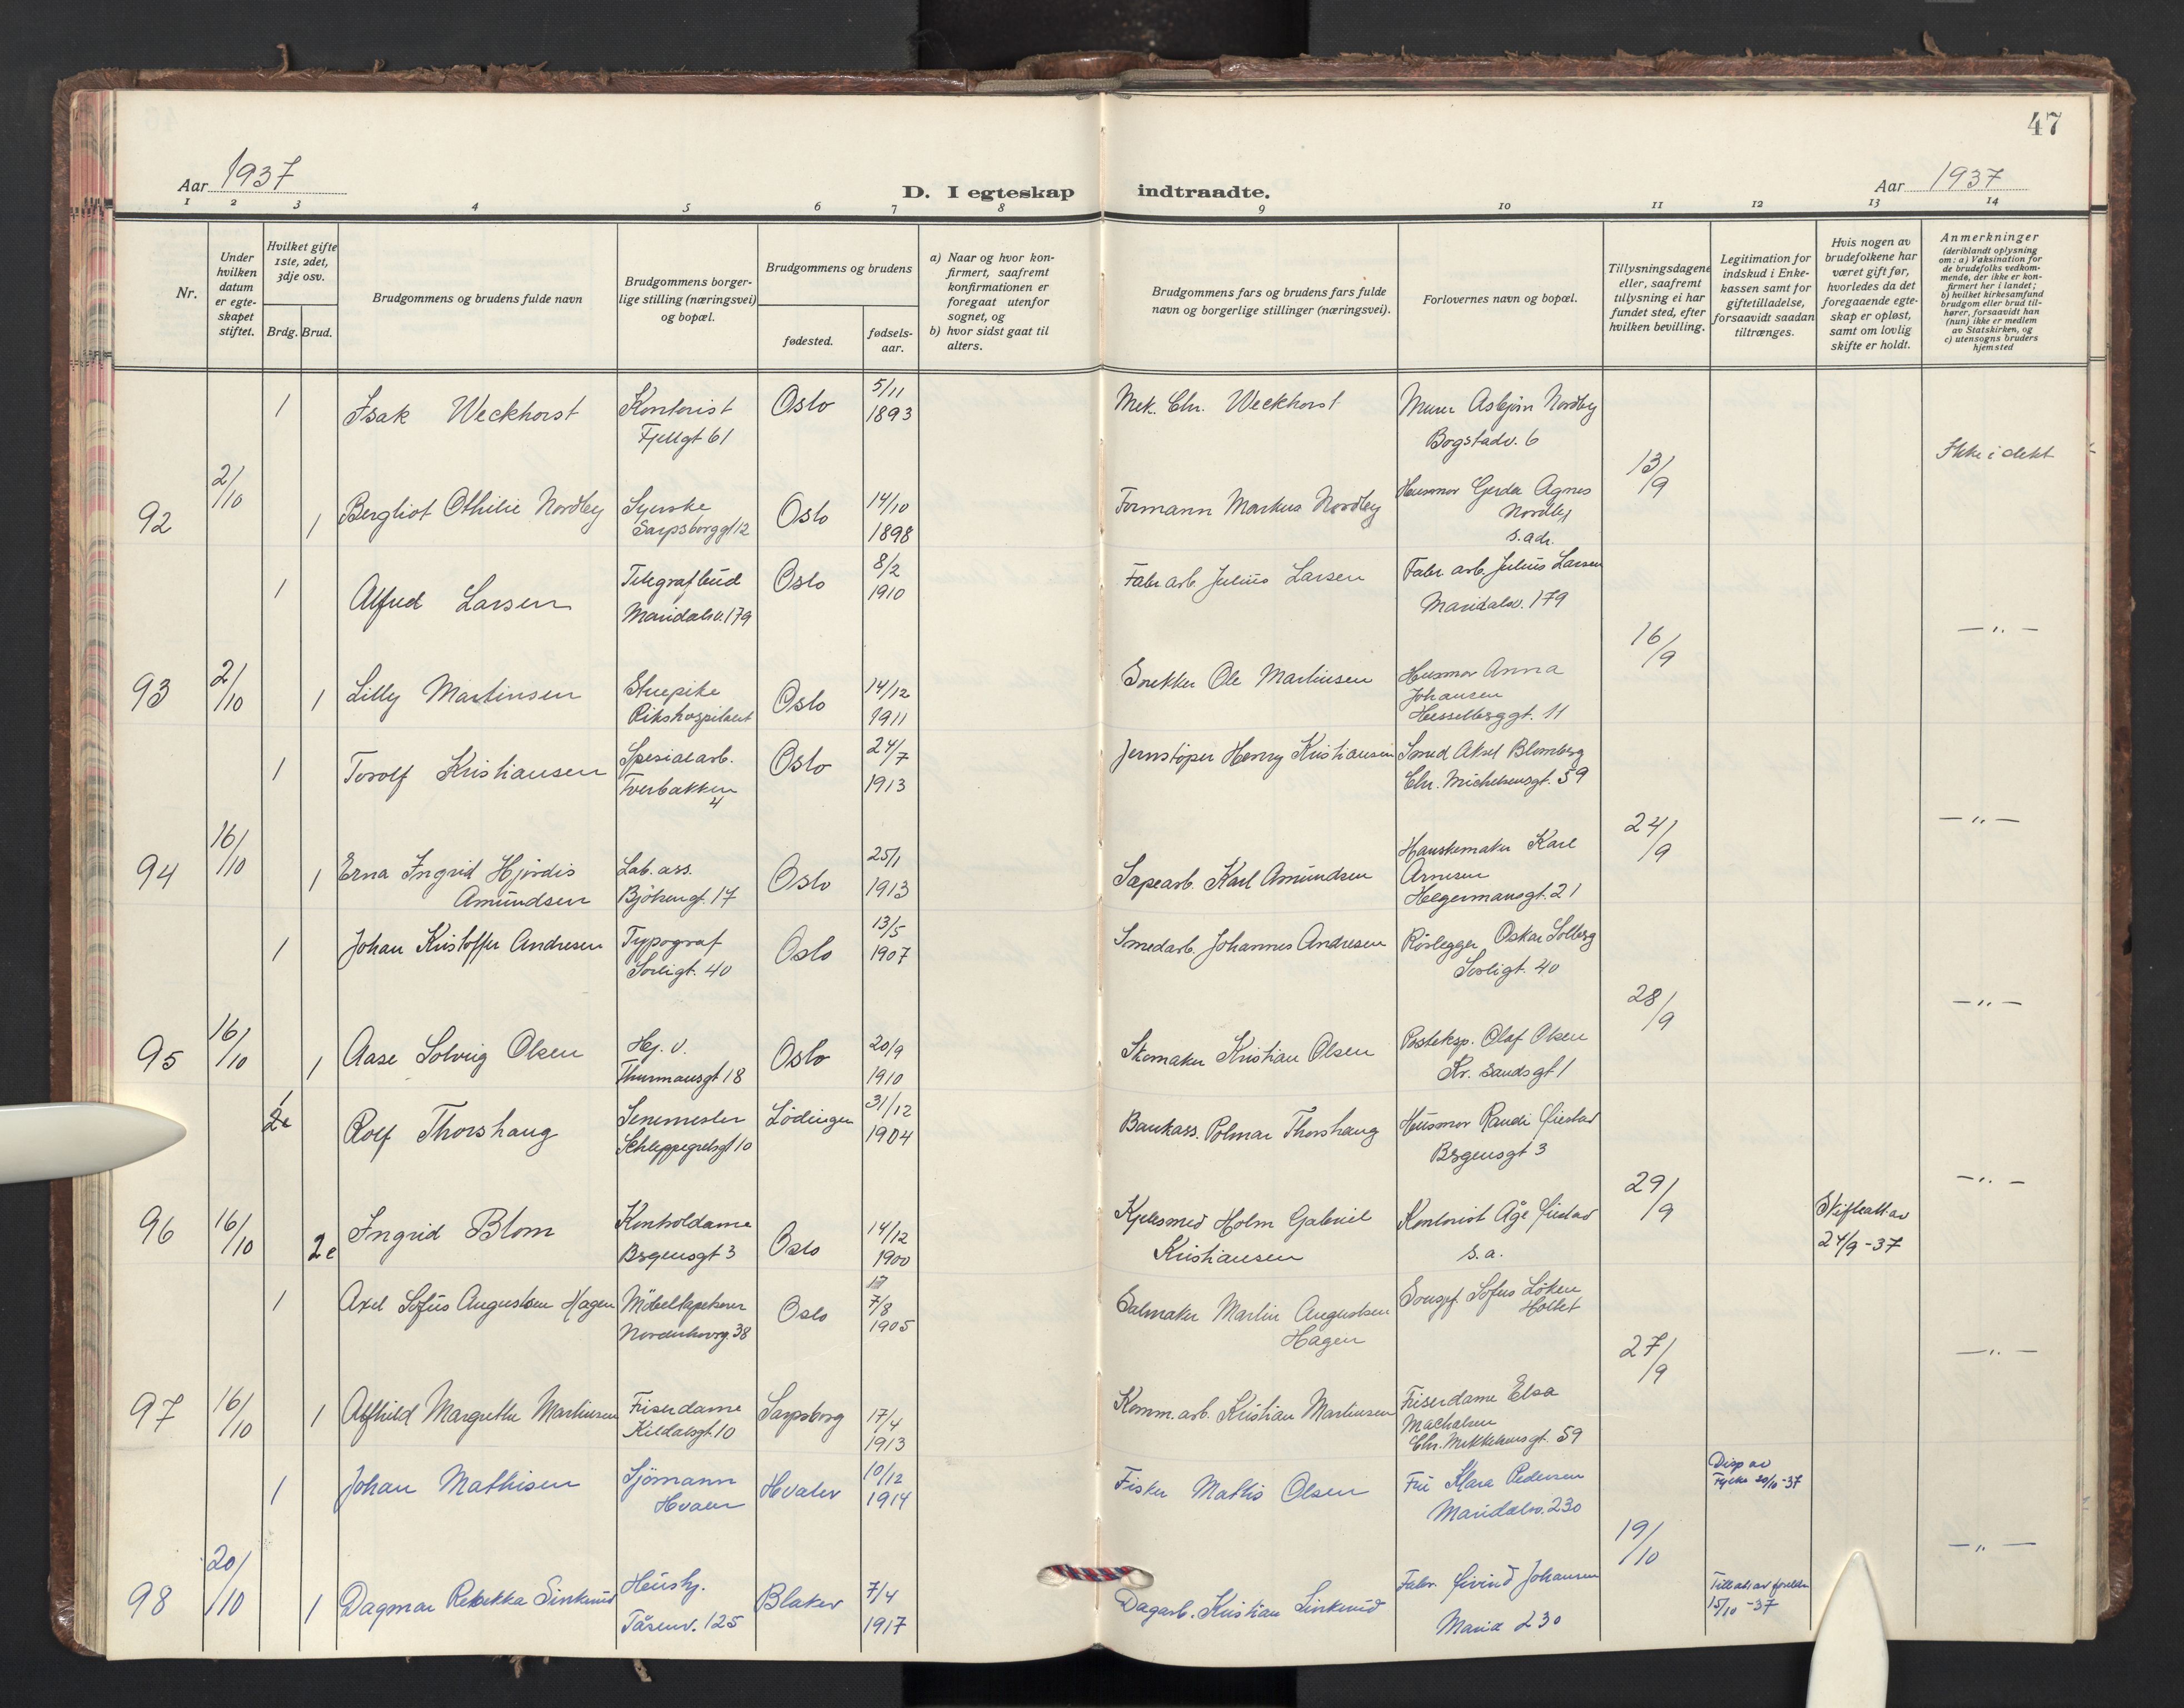 47
Aar 1937
D. I egteskap indtraadte.
Aar 1937
1 2 3 4 5 6 7 8 9 10 11 12 13 14
Nr.
Under hvilken datum er egteskapet stiftet.
Hvilket gifte 1ste, 2det, 3dje osv.
Brdg. Brud.
Brudgommens og brudens fulde navn
Brudgommens borgerlige stilling (næringsvei) og bopæl.
Brudgommens og brudens
fødested.
fødselsaar.
a) Naar og hvor konfirmert, saafremt konfirmationen er foregaat utenfor sognet, og
b) hvor sidst gaat til alters.
Brudgommens fars og brudens fars fulde navn og borgerlige stillinger (næringsvei).
Forlovernes navn og bopæl.
Tillysningsdagene eller, saafremt tillysning ei har fundet sted, efter hvilken bevilling.
Legitimation for indskud i Enkekassen samt for giftetilladelse, forsaavidt saadan tiltrænges.
Hvis nogen av brudefolkene har været gift før, hvorledes da det foregaaende egteskap er opløst, samt om lovlig skifte er holdt.
Anmerkninger
(deriblandt oplysning om: a) Vaksination for de brudefolks vedkommende, der ikke er konfirmert her i landet; b) hvilket kirkesamfund brudgom eller brud tilhører, forsaavidt han (hun) ikke er medlem av Statskirken, og c) utensogns bruders hjemsted
1 Isak Weckhorst Kontorist Fjellgt 61 Oslo 5/11 1893 Mek. Chr. Weckhorst Murer Asbjørn Nordby Bogstadv. 6
92 2/10 1 Bergliot Othilie Nordby Syerske Sarpsborggt 12 Oslo 14/10 1898 Formann Markus Nordby Husmor Gerda Agnes Nordby s. adr. 13/9 Ikke i slekt
1 Alfred Larsen Telegrafbud Maridalsv. 179 Oslo 8/2 1910 Fabr arb. Julius Larsen Fabr. arb. Julius Larsen Maridalsv. 179
93 2/10 1 Lilly Martinsen Stuepike Rikshospitalet Oslo 14/12 1911 Snekker Ole Martinsen Husmor Anna Johansen Hesselberggt. 11 16/9 — „ —
1 Torolf Kristiansen Spesialarb. Tverbakken 4 Oslo 24/7 1913 Jernstøper Henry Kristiansen Smed Aksel Blomberg Chr. Michelsensgt. 59
94 16/10 1 Erna Ingrid Hjørdis Amundsen Lab. ass. Bjölsengt. 17 Oslo 25/1 1913 Sæpearb. Karl Amundsen Hanskemaker Karl Arnesen Helgermansgt. 21 24/9 — „ —
1 Johan Kristoffer Andresen Typograf Sorligt. 40 Oslo 13/5 1907 Smedarb. Johannes Andresen Rörlegger Oskar Solberg Sorligt. 40
95 16/10 1 Aase Solveig Olsen Hj. v. Thurmansgt 18 Oslo 20/9 1910 Skomaker Kristian Olsen Posteksp. Olaf Olsen Kr. sands gt 1 28/9 — „ —
2e Rolf Thorshaug Schleppegrelsgt 10 Lödingen 31/12 1904 Bankass. Polmar Thorshaug Husmor Randi Bergensgt 3
96 16/10 2e Ingrid Blom Kontroldame Bergensgt 3 Oslo 14/12 1900 Kjelesmed Holm Gabriel Kristiansen Kontorist Åge s. a. 29/9 Skifteatt av 24/9-37 — „ —
1 Axel Sofus Augustsen Hagen Möbeltapetserer Norderhovsg. 38 Oslo 17 7/8 1905 Salmaker Martin Augustsen Hagen Sofus Löken Holtet
97 16/10 1 Alfhild Margrethe Martinsen Friserdame Kildalsgt. 10 Sarpsborg 17/4 1913 Komm. arb. Kristian Martinsen Friserdame Elsa Chr. Mikkelsensgt. 59 27/9 — „ —
1 Johan Mathisen Sjömann Hvaler Hvaler 10/12 1914 Fisker Mathis Olsen Fru Klara Pedersen Maridalsv. 230 Disp av Fylke 20/10-37
98 20/10 1 Dagmar Rebekka Sinkerud Hushj. Tåsenv. 125 Blaker 7/4 1917 Dagarb. Kristian Sinkerud Fabr. Eivind Johansen Marid 230 19/10 Tillat av foreldre 15/10-37 — „ —